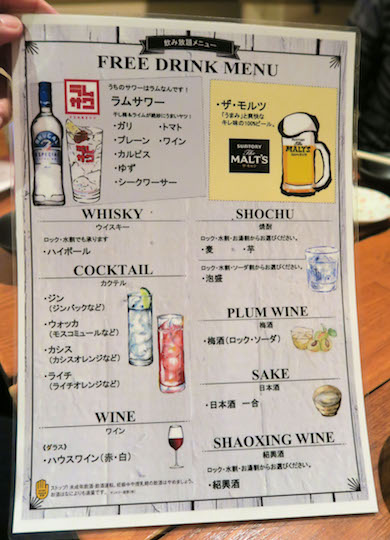 飲み放題メニュー
FREE DRINK MENU
ラムサワ
うちのサワーはラムなんです！
ラムサワー
・ガリ ・トマト
・プレーン ・ワイン
・カルピス
・ゆず
・シークワーサー
・ザ・モルツ
「うまみ」と爽快な
キレ味の100%ビール。
SUNTORY
The
MALT'S
ザ・モルツ
MALT'S
WHISKY
ウイスキー
ロック・水割でも承ります
・ハイボール
COCKTAIL
カクテル
・ジン
（ジンバックなど）
・ウォッカ
（モスコミュールなど）
・カシス
（カシスオレンジなど）
・ライチ
（ライチオレンジなど）
WINE
ワイン
《グラス》
・ハウスワイン（赤・白）
SHOCHU
焼酎
ロック・水割・お湯割からお選びください。
・麦 ・芋
ロック・水割・ソーダ割からお選びください。
・泡盛
PLUM WINE
梅酒
・梅酒（ロック・ソーダ）
SAKE
日本酒
・日本酒 一合
SHAOXING WINE
紹興酒
ロック・水割・お湯割からお選びください。
・紹興酒
ストップ！未成年飲酒・飲酒運転。妊娠中や授乳期の飲酒はやめましょう。
お酒はなによりも適量です。